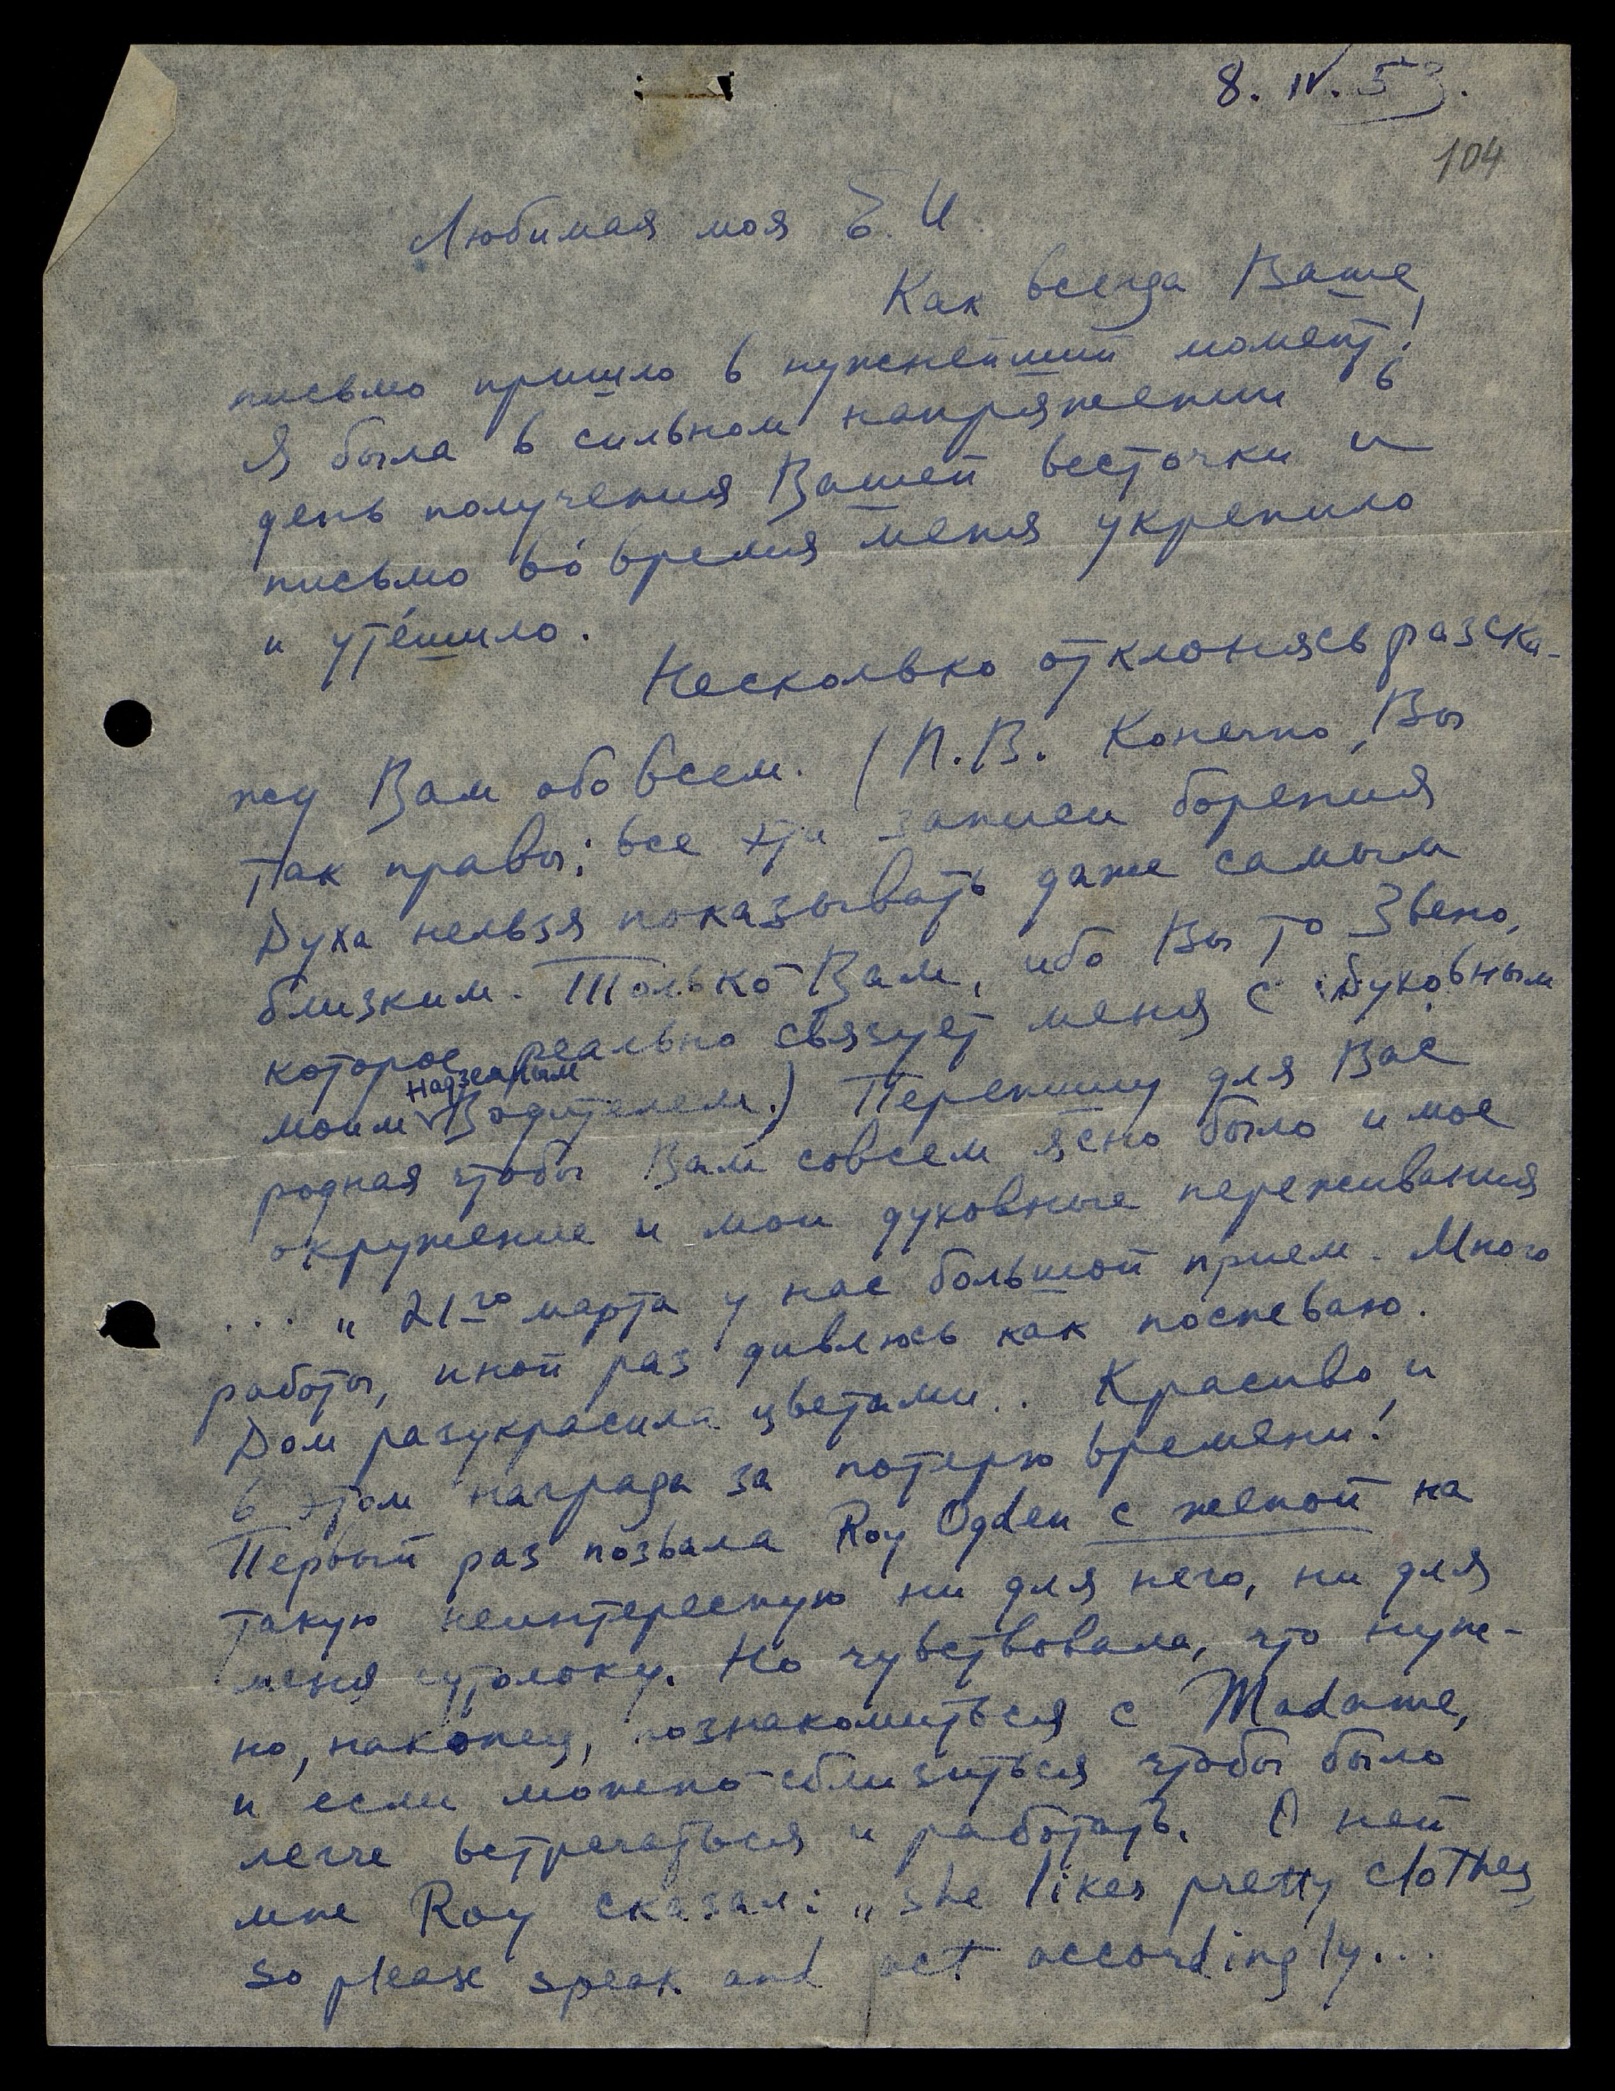 8. IV. 53.
104
Любимая моя Е. И.
Как всегда Ваше
письмо пришло в нужнейший момент!
Я была в сильном напряжении в
день получения Вашей весточки и
письмо во́ время меня укрепило
и уте́шило.
Несколько отклонясь разска-
жу Вам обо всем. (П.В. Конечно, Вы
так правы; все эти записи борения
Духа нельзя показывать даже самым
близким. Только Вам, ибо Вы то Звено,
которое реально связует меня с Духовным
моим Надземным Водителем.) Перепишу для Вас
родная чтобы Вам совсем ясно было и мое
окружение и мои духовные переживания
... „21го марта у нас большой прием. Много
работы, иной раз дивлюсь как поспеваю.
Дом разукрасила цветами.. Красиво, и
в этом награда за потерю времени!
Первый раз позвала Roy Ogden с женой на
такую неинтересную ни для него, ни для
меня сутолоку. Но чувствовала, что нуж-
но, наконец, познакомиться с Madame,
и если можно сблизиться чтобы было
легче встречаться и работать. О ней
мне Roy сказал: „she likes pretty clothes
so please speak and act accordingly...